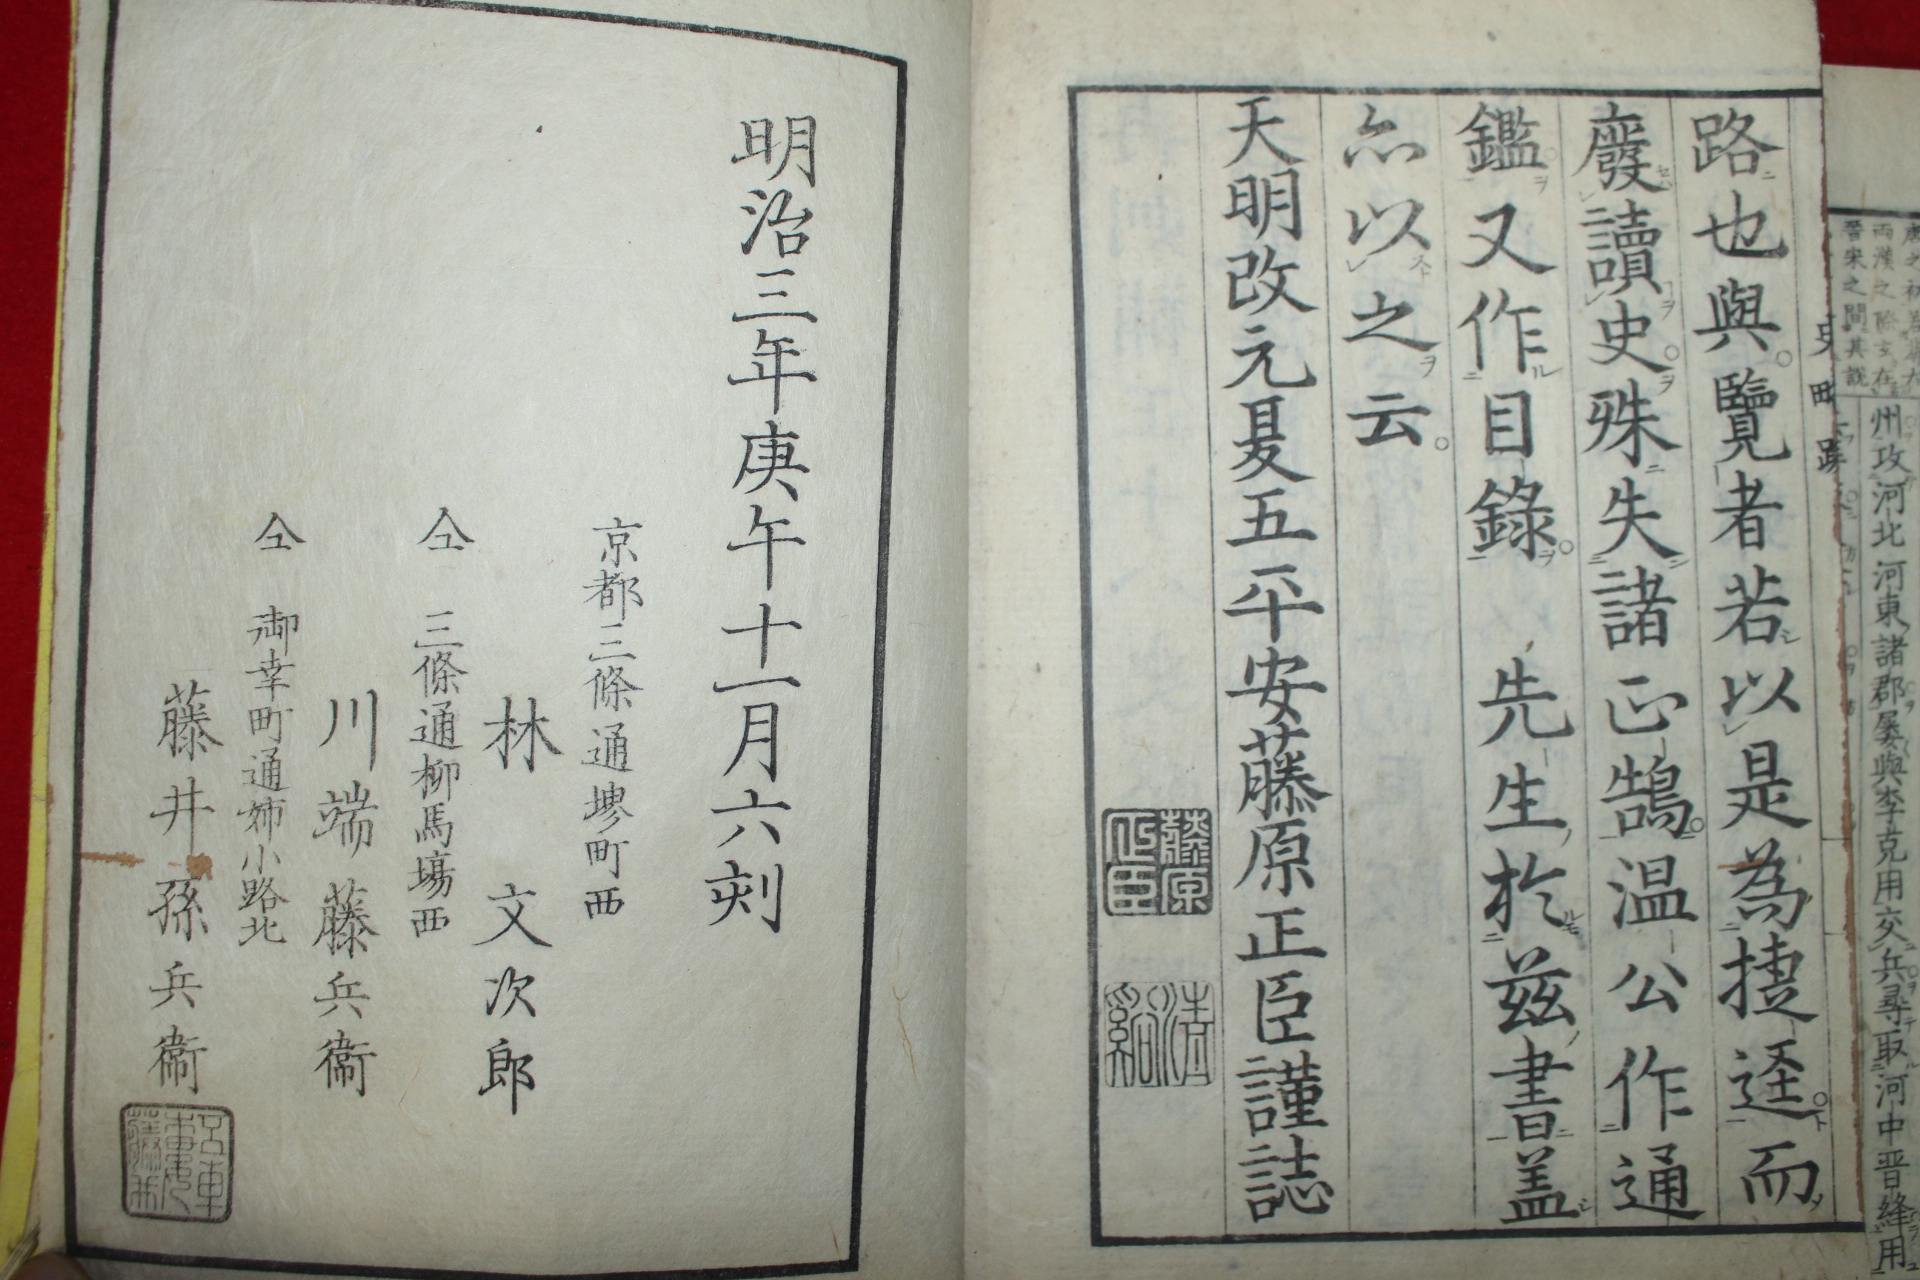 史略跋
路也與覽者若以是為捷逕而
廢讀史殊失諸正鵠温公作通
鑑又作目錄 先生於茲書盖
亦以之云
天明改元夏五平安藤原正臣謹誌
藤原正臣
明治三年庚午十一月六刻
京都三條通堺町西
林 文次郎
仝 三條通柳馬場西
川端藤兵衞
仝 御幸町通姉小路北
藤井孫兵衞
州攻河北河東諸郡屡與李克用交兵尋取河中晋絳用